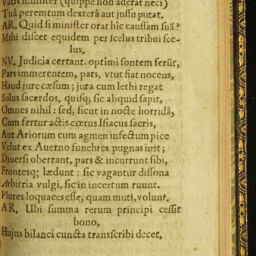 Vatis minister (quippe non aderat neci)
Tuâ peremtum dexterâ aut jussu putat.
AR. Quid si minister orat hîc caussam suã?
Mihi discet equidem per scelus tribui sce-
lus.
NV. Judicia certant. optimi sontem ferũt,
Pars immerentem, pars, vtut fiat nocens,
Haud jure cæsum; jura cum lethi regat
Solus sacerdos, quisq; sic aliquid sapit,
Omnes nihil: sed, sicut in nocte horridâ,
Cum fertur actis cœtus Isiacus sacris,
Aut Ariorum cum agmen infectum pice
Velut ex Averno funebres pugnas init;
Diversi oberrant, pars & incurrunt sibi,
Frontesq; lædunt: sic vagantur dissona
Arbitria vulgi, sic in incertum ruunt.
Plures loquaces esse, quam muti, volunt.
AR. Ubi summa rerum principi cessit
bono,
Hujus bilanci cuncta transcribi decet,